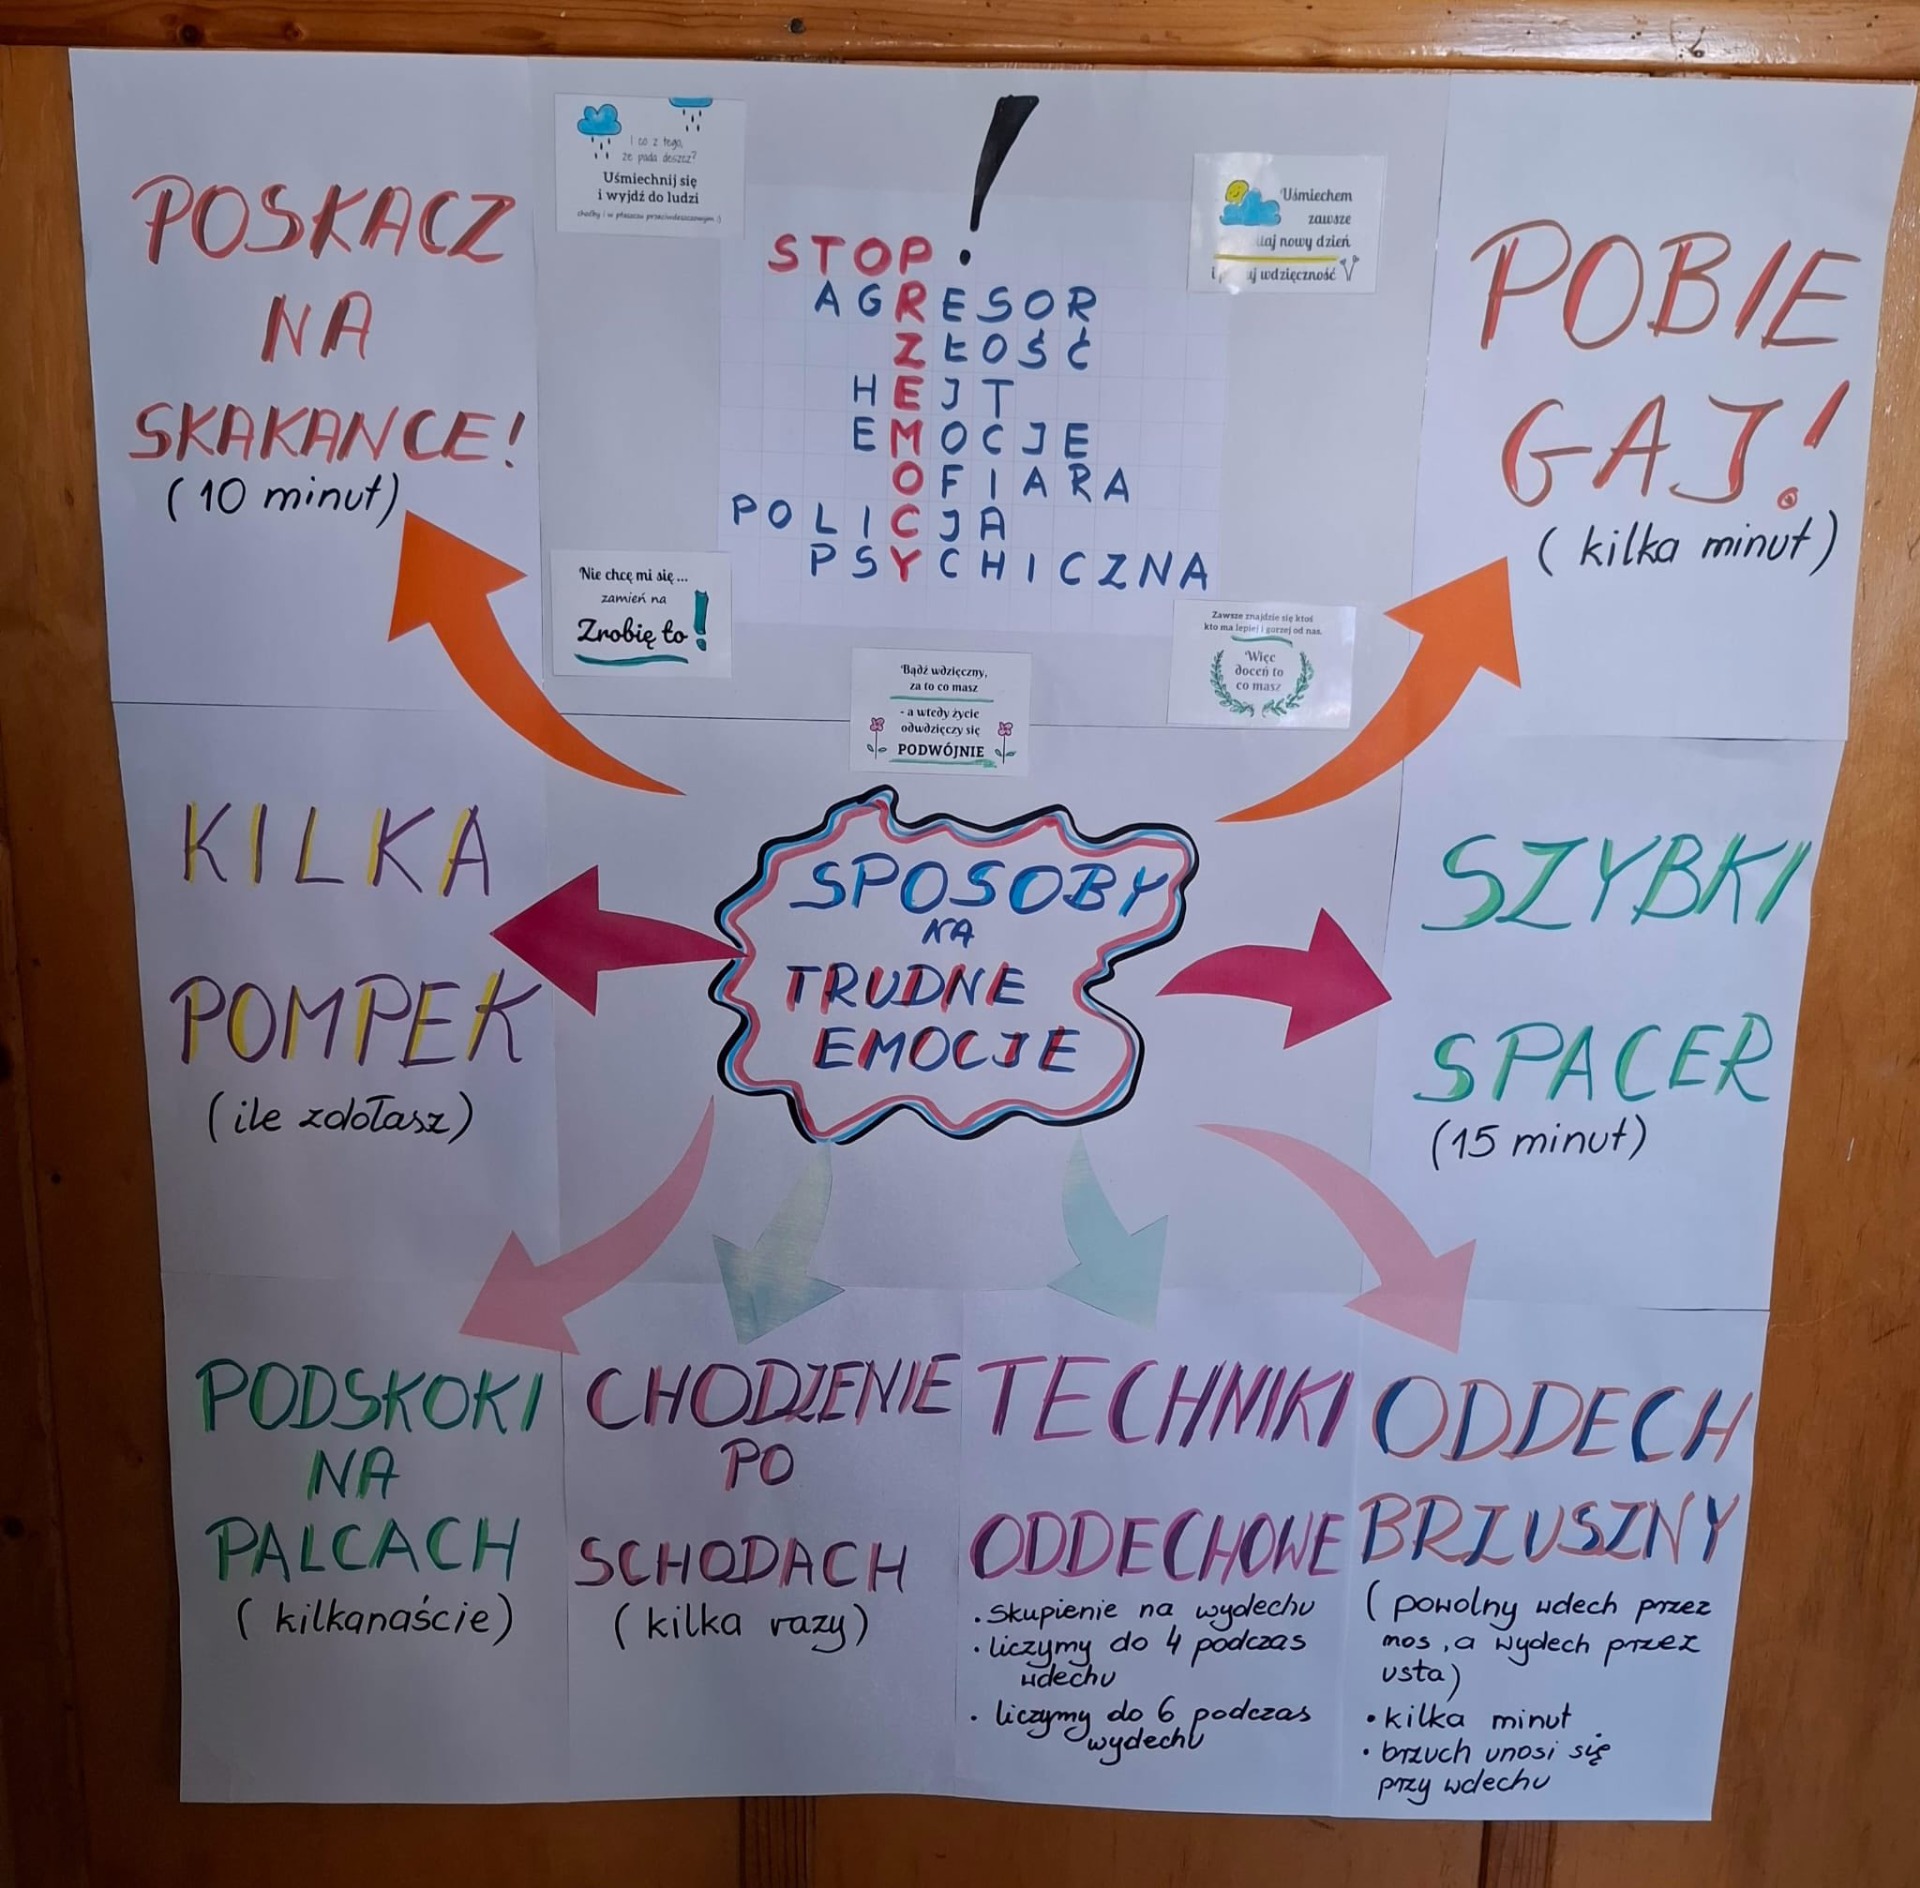 POSKACZ
NA
SKAKANCE!
(10 minut)
I co z tego,
że pada deszcz?
Uśmiechnij się
i wyjdź do ludzi
choćby i w płaszczu przeciwdeszczowym :)
!
STOP
AGRESOR
ZŁOŚĆ
HEJT
EMOCJE
OFIARA
POLICJA
PSYCHICZNA
Uśmiechem
zawsze
nowy dzień
i wdzięczność
POBIE
GAJ!
(kilka minut)
Nie chcę mi się...
zamień na
Zrobię to!
Bądź wdzięczny,
za to co masz
- a wtedy życie
odwdzięczy się
PODWÓJNIE
Zawsze znajdzie się ktoś
kto ma lepiej i gorzej od nas.
Więc
doceń to
co masz
SPOSOBY
NA
TRUDNE
EMOCJE
KILKA
POMPEK
(ile zdołasz)
SZYBKI
SPACER
(15 minut)
PODSKOKI
NA
PALCACH
(kilkanaście)
CHODZENIE
PO
SCHODACH
(kilka razy)
TECHNIKI
ODDECHOWE
• skupienie na wydechu
• liczymy do 4 podczas
wdechu
• liczymy do 6 podczas
wydechu
ODDECH
BRZUSZNY
(powolny wdech przez
nos, a wydech przez
usta)
• kilka minut
• brzuch unosi się
przy wdechu